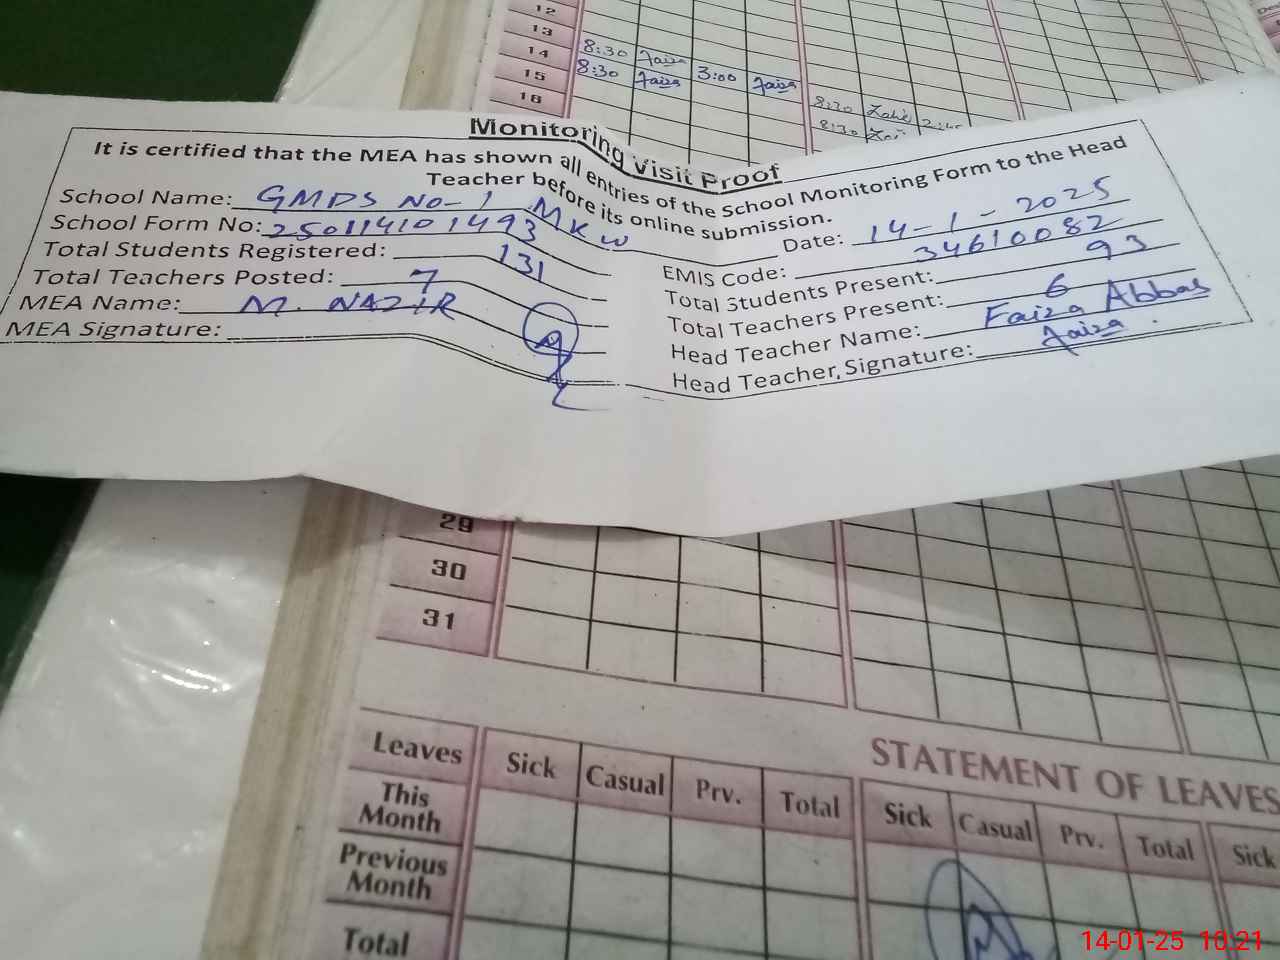 12
13
14 8:30 Faiza
15 8:30 Faiza 3:00 Faiza
16
8:30
8:30
Monitoring Visit Proof
It is certified that the MEA has shown all entries of the School Monitoring Form to the Head
Teacher before its online submission.
School Name: GMDS No-1 MKW
Date: 14-1-2025
School Form No: 250114101493
EMIS Code: 34610082
Total Students Registered: 131
Total Students Present: 93
Total Teachers Posted: 7
Total Teachers Present: 6
MEA Name: M. NAZIR
Head Teacher Name: Faiza Abbas
MEA Signature:
Head Teacher, Signature: Faiza.
29
30
31
STATEMENT OF LEAVES
Leaves Sick Casual Prv. Total Sick Casual Prv. Total Sick
This
Month
Previous
Month
Total
14-01-25 10:21